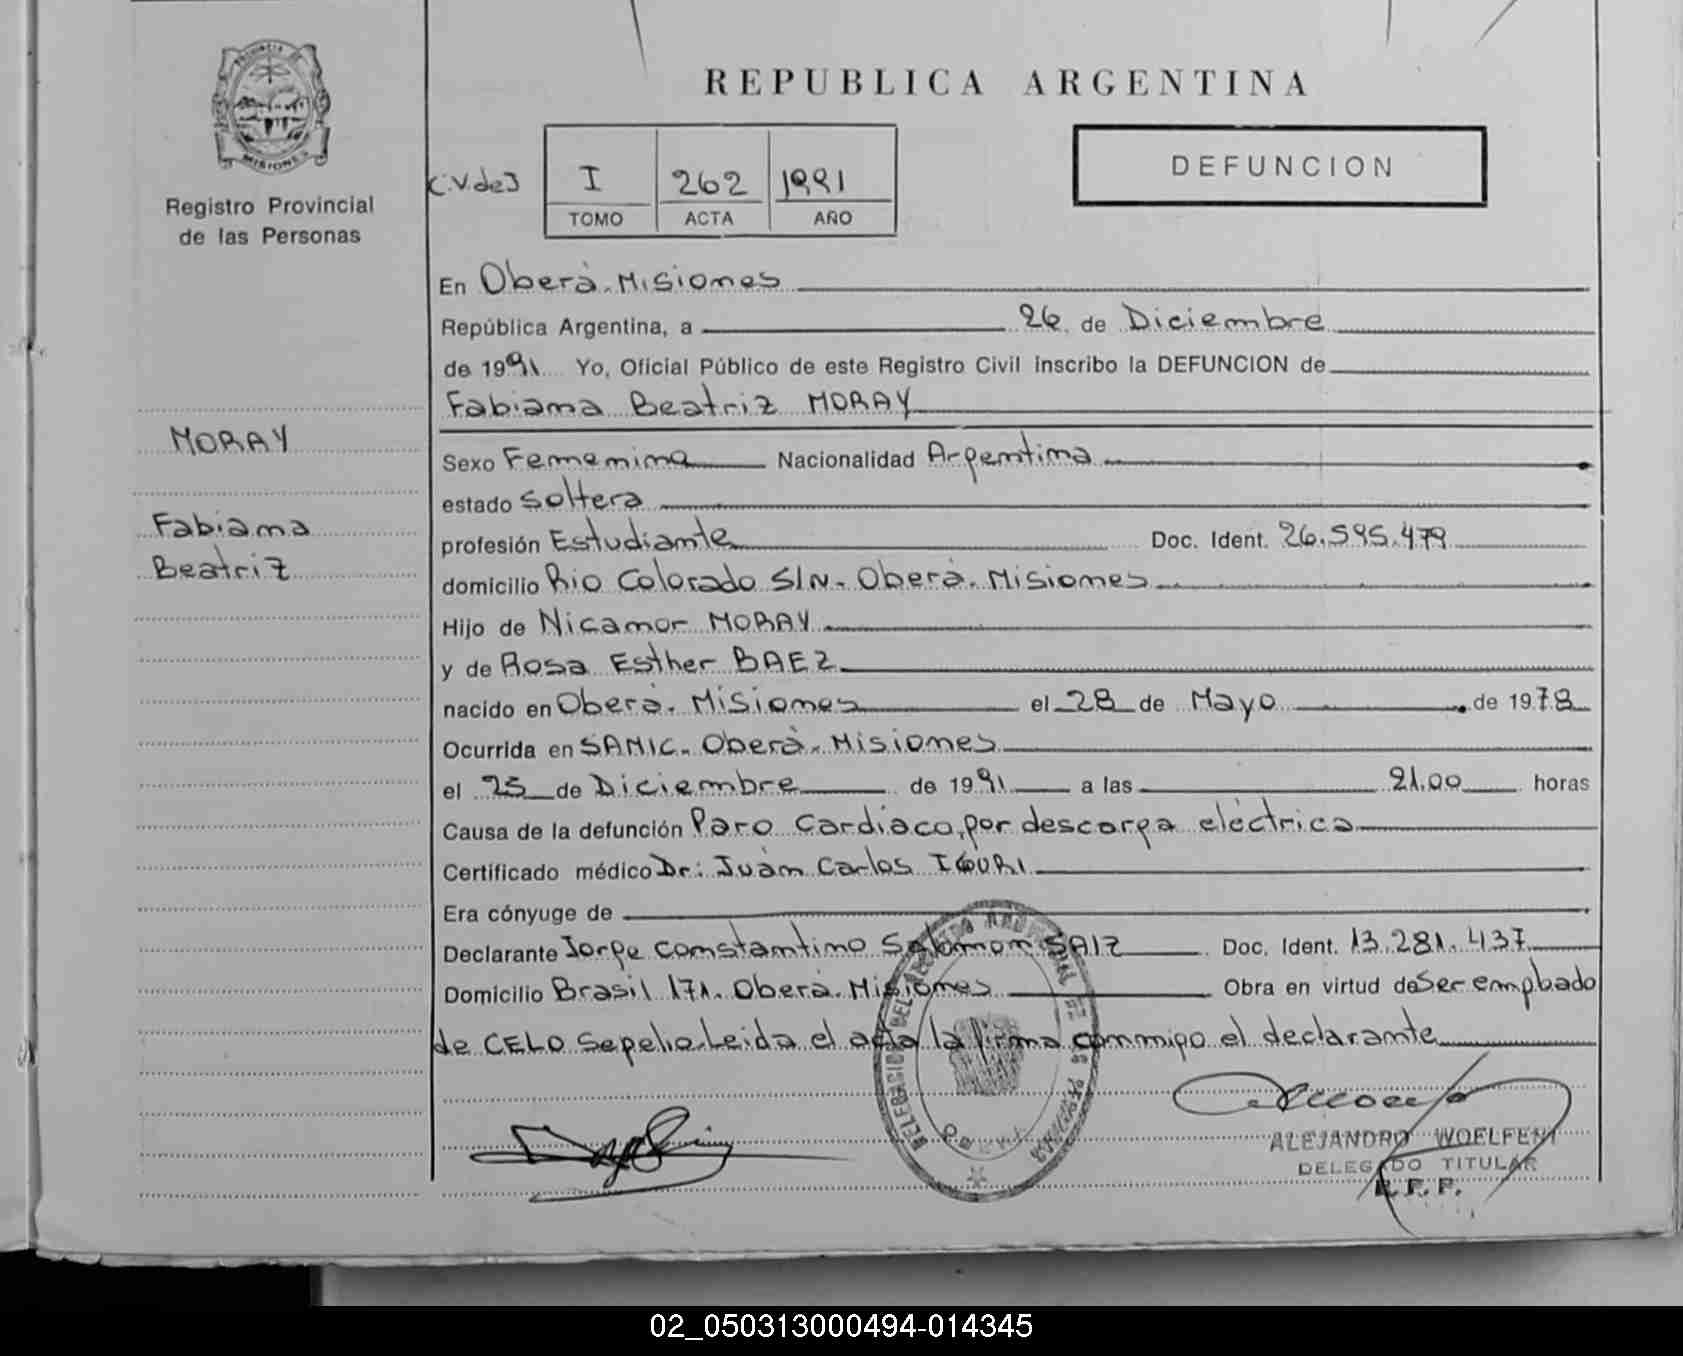 PROVINCIA DE
MISIONES
Registro Provincial
de las Personas
MORAY
Fabiana
Beatriz
REPUBLICA ARGENTINA
I 262 1991
TOMO ACTA AÑO
DEFUNCION
En Oberá. Misiones
República Argentina, a 26 de Diciembre
de 1991 Yo, Oficial Público de este Registro Civil inscribo la DEFUNCION de
Fabiana Beatriz MORAY
Sexo Femenina Nacionalidad Argentina
estado Soltera
profesión Estudiante Doc. Ident. 26.595.479
domicilio Rio Colorado S/N. Oberá. Misiones
Hijo de Nicanor MORAY
y de Rosa Esther BAEZ
nacido en Oberá. Misiones el 28 de Mayo de 1978
Ocurrida en SAMIC. Oberá. Misiones
el 25 de Diciembre de 1991 a las 21.00 horas
Causa de la defunción Paro Cardiaco, por descarga eléctrica
Certificado médico Dr: Juan Carlos IGURI
Era cónyuge de
Declarante Jorge Constantino Salomon SAIZ Doc. Ident. 13.281.437
Domicilio Brasil 171. Oberá. Misiones Obra en virtud de Ser empleado
de CELO Sepelio. Leida el acta la firma conmigo el declarante
ALEJANDRO WOELFERT
DELEGADO TITULAR
R.P.P.
02_050313000494-014345